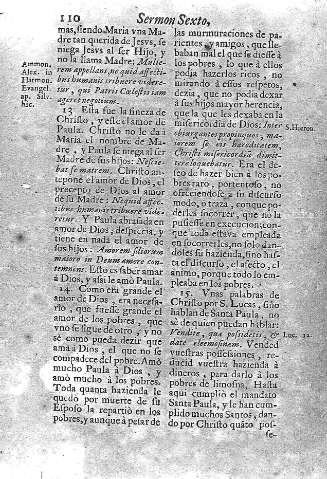 110 Sermon Sexto,
mas, siendo Maria vna Ma-
dre tan querida de Jesvs, se
niega Jesvs al ser Hijo, y
no la llama Madre; Mulie-
rem appellans, ne quid affecti-
bus humanis tribuere videre-
tur, qui Patris Cœlestis tam
ageret negotium.
Ammon.
Alex. in
Harmon.
Evangel.
ap. Silv.
hic.
13 Esta fue la fineza de
Christo, y este el amor de
Paula. Christo no le dà à
Maria el nombre de Ma-
dre, y Paula se niega al ser
Madre de sus hijos: Nescie-
bat se matrem. Christo an-
tepone el amor de Dios, el
precepto de Dios al amor
de su Madre: Ne quid affec-
tibus humanis tribuere vide-
retur. Y Paula abrasada en
amor de Dios, desprecia, y
tiene en nada el amor de
sus hijos: Amorem filiorum
maiore in Deum amore con-
temnens. Esto es saber amar
à Dios, y assi le amò Paula.
14 Como era grande el
amor de Dios, era necessa-
rio, que fuesse grande el
amor de los pobres, que
vno se sigue de otro, y no
sè como pueda dezir que
ama à Dios, el que no se
compadece del pobre. Amò
mucho Paula à Dios, y
amò mucho à los pobres.
Toda quanta hazienda le
quedò por muerte de su
Esposo la repartiò en los
pobres, y aunque à pesar de
las murmuraciones de pa-
rientes, y amigos, que lle-
baban mal el que se diesse à
los pobres, lo que à ellos
podia hazerlos ricos, no
mirando à estos respetos,
dezia, que no podia dexar
à sus hijos mayor herencia,
que la que les dexaba en la
misericordia de Dios: Inter
obiurgantes propinquos, ma-
iorem se eis hereditatem,
Christi misericordiam dimit-
tere loquebatur. Era el de-
seo de hazer bien à los po-
bres raro, portentoso, no
ofreciendosele à su discurso
modo, o traza, conque po-
derles socorrer, que no la
pusiesse en execucion, con-
que toda estaba empleada
en socorrerles, no solo dan-
doles su hazienda, sino has-
ta el discurso, el afecto, el
animo, porque todo lo em-
pleaba en los pobres.
S. Hieron.
15. Vnas palabras de
Christo por S. Lucas, sino
hablan de Santa Paula, no
sè de quien puedan hablar:
Vendite, quæ possidetis, &
date eleemosinam. Vended
vuestras possessiones, re-
ducid vuestra hazienda à
dineros, para darlo à los
pobres de limosna. Hasta
aqui cumpliò el mandato
Santa Paula, y le han cum-
plido muchos Santos, dan-
do por Christo quãto pos-
Luc.
se-